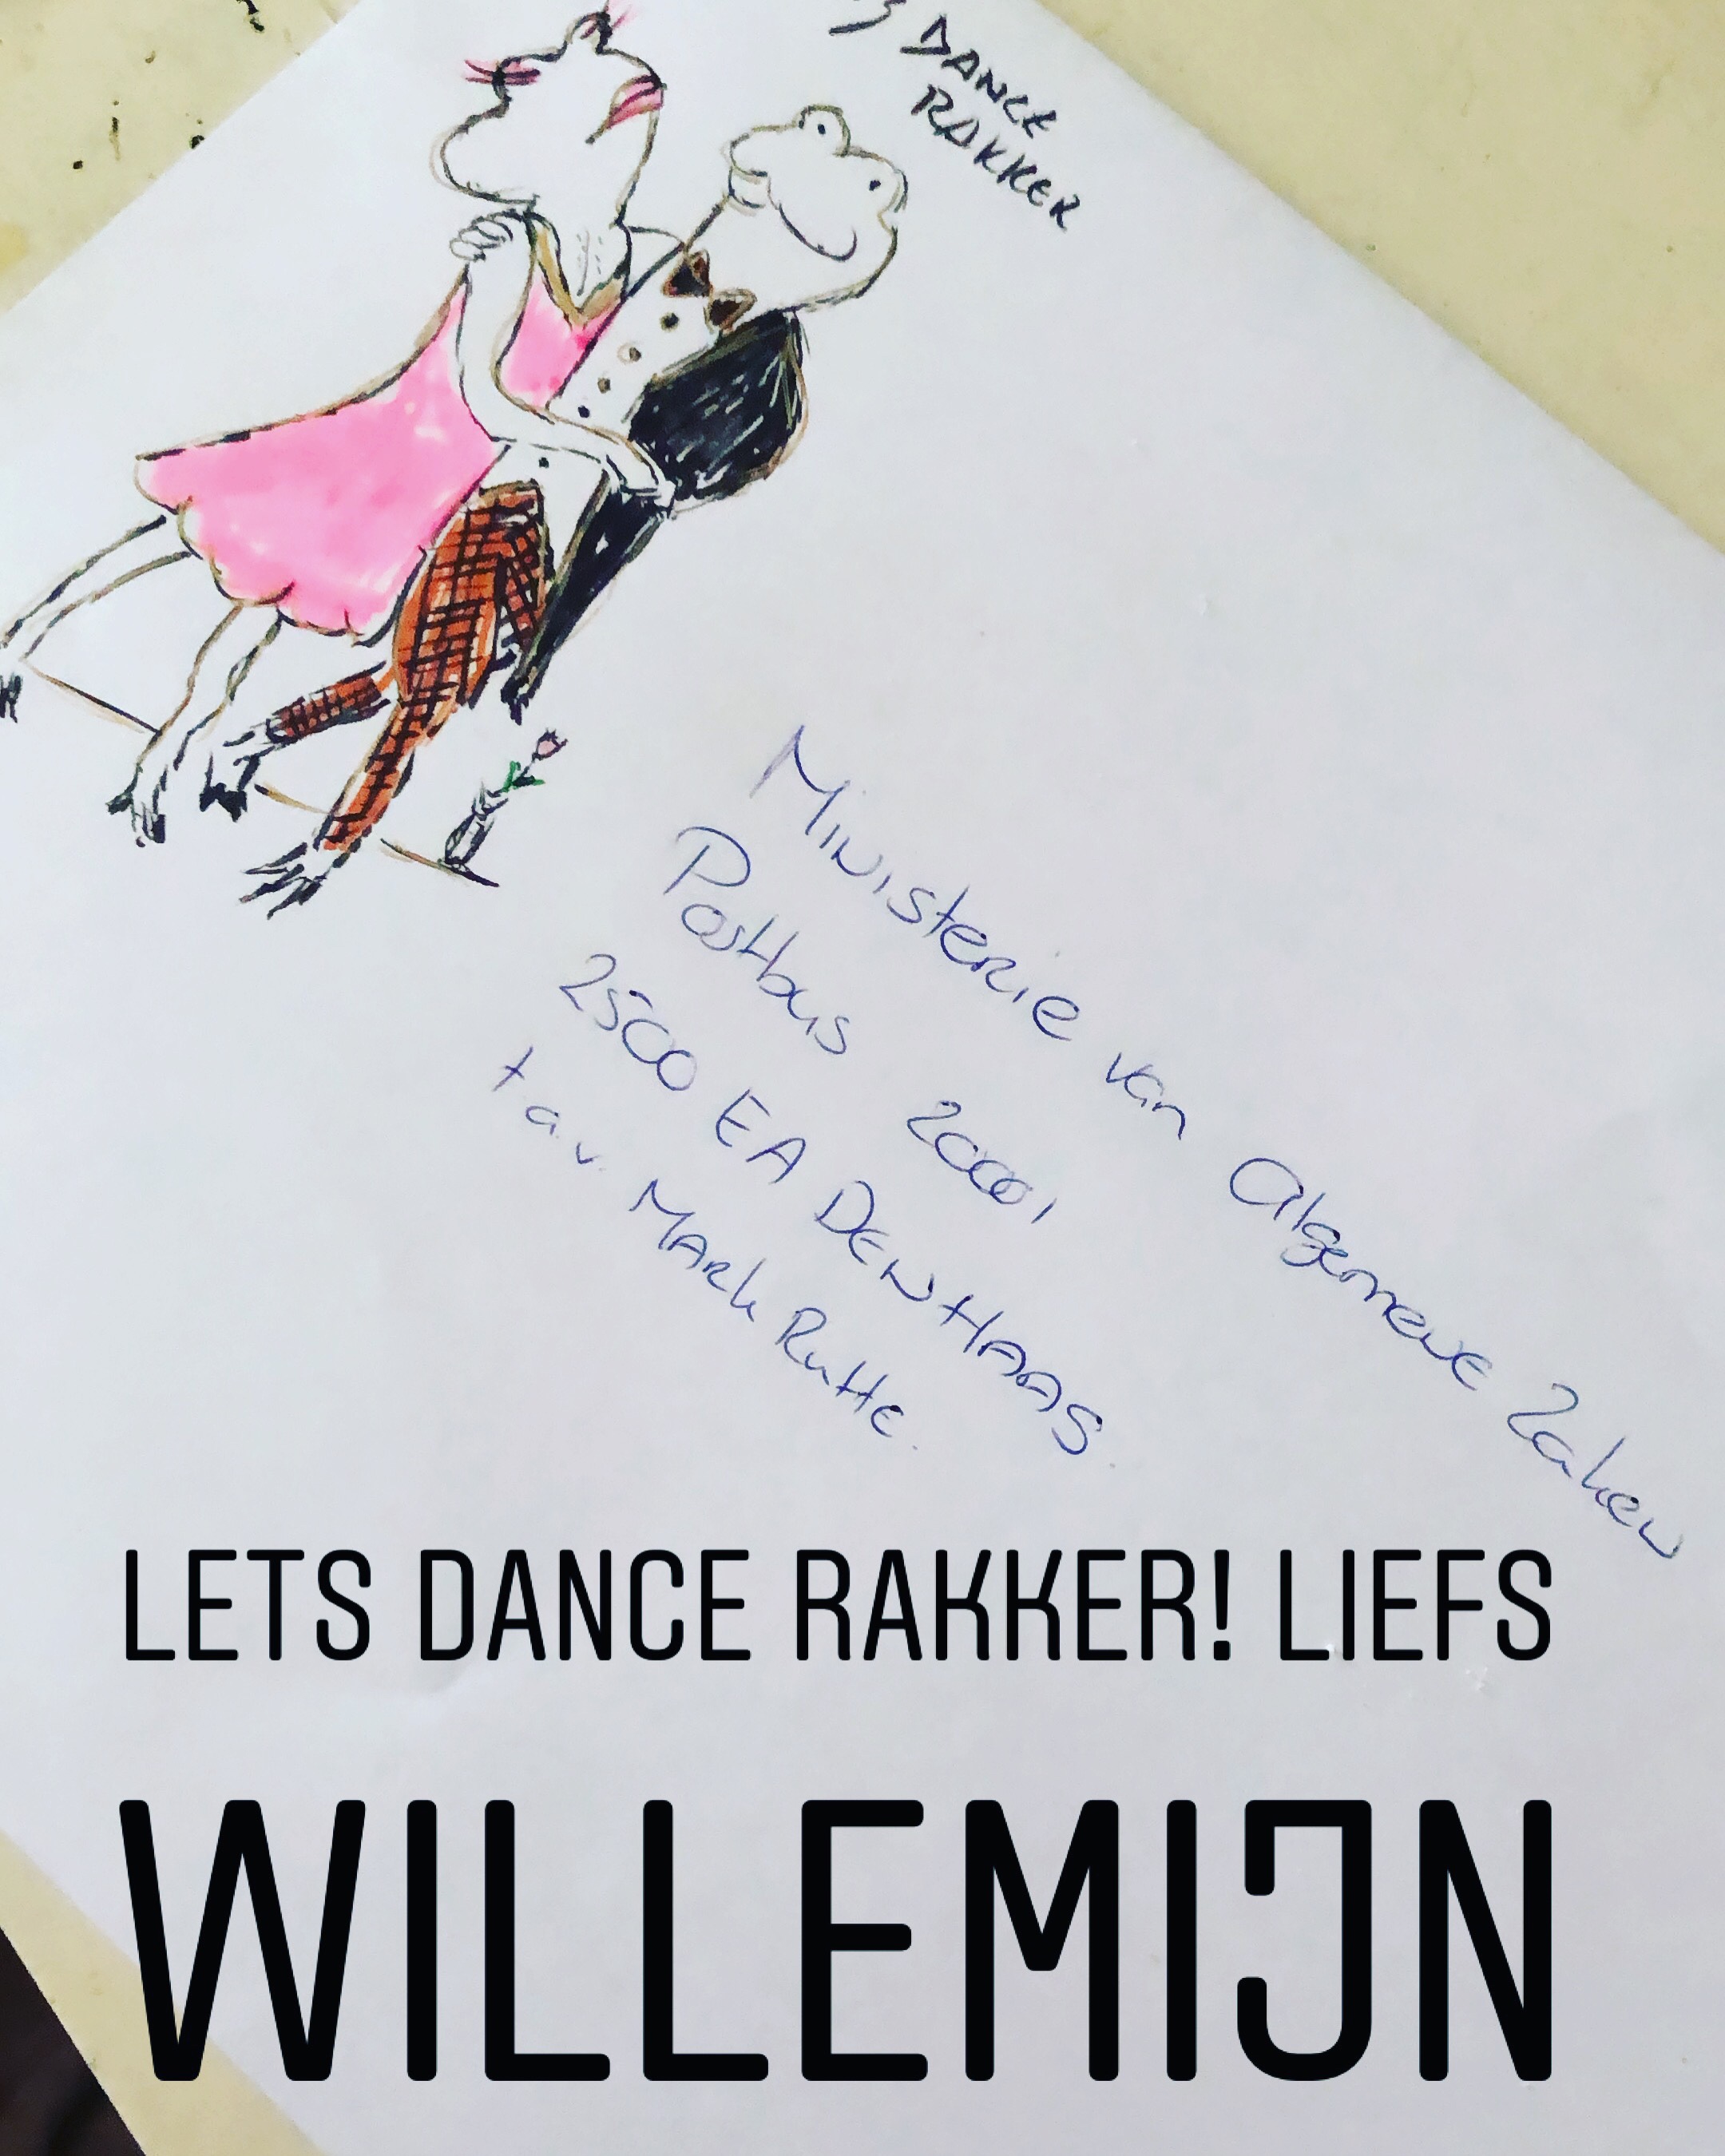 DANCE
RAKKER
Ministerie van Algemene Zaken
Postbus 20001
2500 EA DEN HAAG
t.a.v. Mark Rutte.
LETS DANCE RAKKER! LIEFS
WILLEMIJN